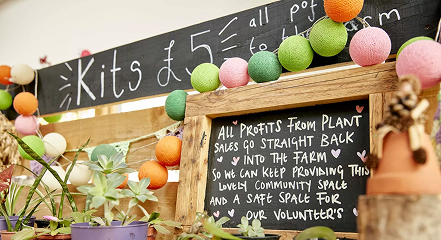 Kits £5 all pot
to farm
ALL PROFITS FROM PLANT
SALES GO STRAIGHT BACK
INTO THE FARM
SO WE CAN KEEP PROVIDING THIS
LOVELY COMMUNITY SPACE
AND A SAFE SPACE FOR
OUR VOLUNTEER'S